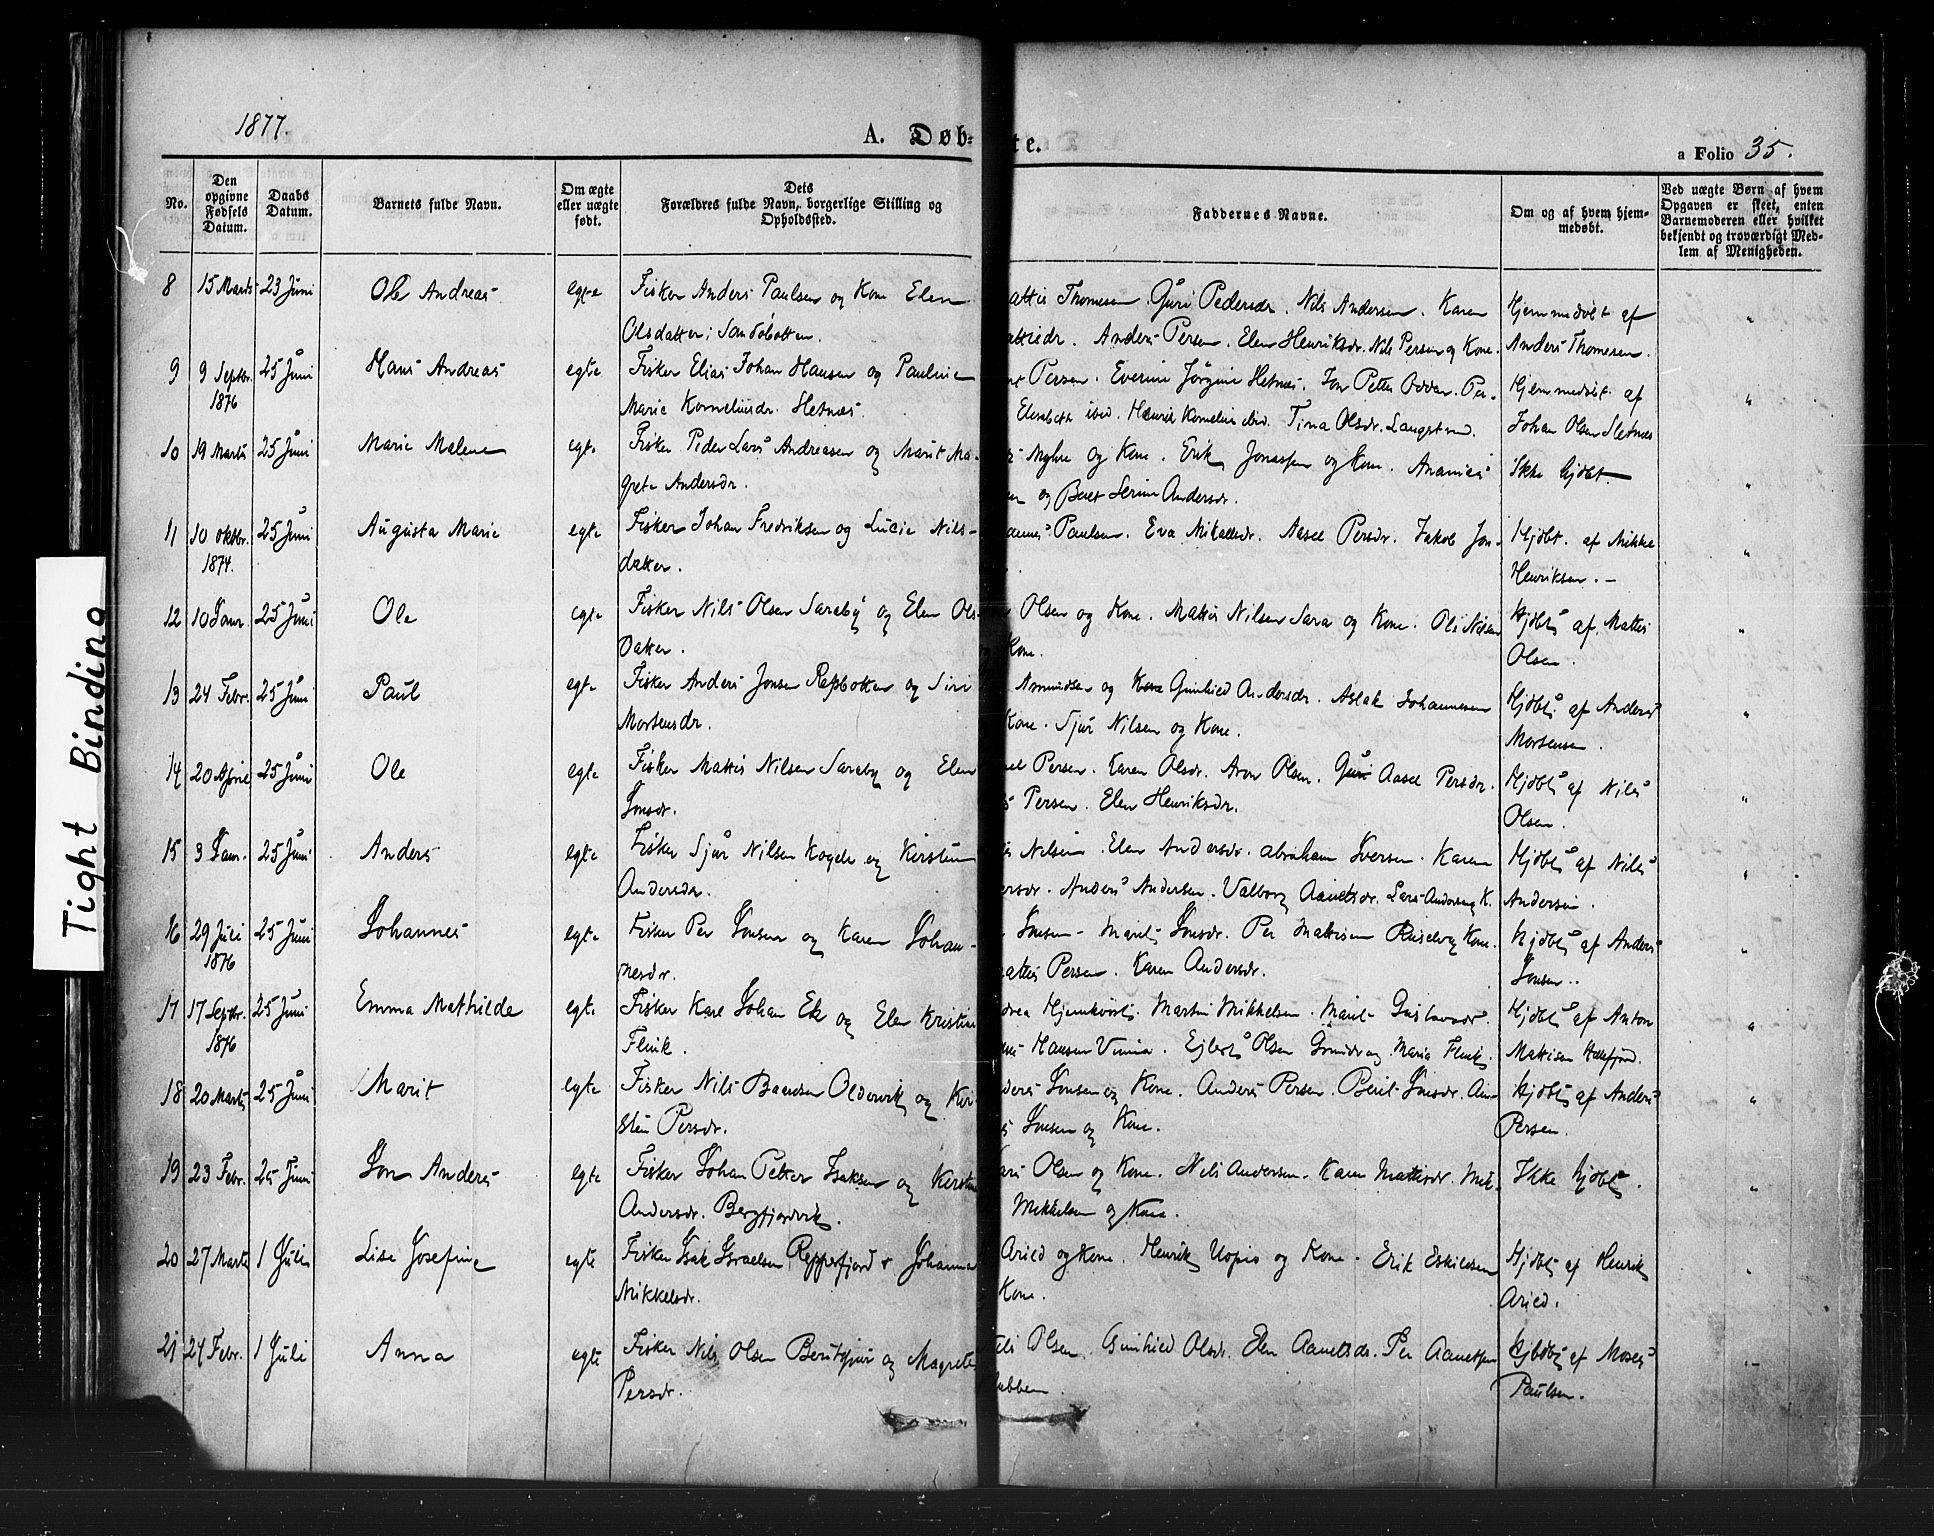 1877.
A. Døb=
te.
a Folio 35.
No.
Den opgivne Fødsels Datum.
Daabs Datum.
Barnets fulde Navn.
Om ægte eller uægte født.
Dets Forældres fulde Navn, borgerlige Stilling og Opholdssted.
Faddernes Navne.
Om og af hvem hjem-
medøbt.
Ved uægte Børn af hvem
Opgaven er skeet, enten
Barnemoderen eller hvilket
bekjendt og troværdigt Med-
lem af Menigheden.
8 15 Marts 23 Juni Ole Andreas egte Fisker Anders Paulsen og Kone Elen
Olsdatter;
attis Thomesen. Guri Pedersdr. Nils Andersen. Karen Hjemmedøbt af
attisdr. Anders Persen. Elen Henriksdr. Nils Persen og Kone. Anders Thomesen.
9 9 Septbr. 1876 25 Juni Hans Andreas egte Fisker Elias Johan Hansen og Pauline
Marie Korneliusdr. Sletnes.
Persen. Everine Jörgine Sletnes. Jon Petter Hjemmedøbt af
Elisabeth ibid. Henrik Kornelius ibid. Tina Olsdr. Langstrand. Johan Olsen Sletnes
10 19 Marts 25 Juni Marie Malene egte Fisker Peder Lars Andreassen og Marit Ma-
grete Andersdr.
Myhre og Kone. Erik Jonassen og Kone. Ananias Ikke hjdbt.
og Beret Serine Andersdr.
11 10 Oktbr. 1874. 25 Juni Augusta Marie egte Fisker Johan Fredriksen og Lucie Nils-
datter.
annes Paulsen. Eva Mikkelsdr. Aasel Persdr. Jakob Jon- Hjdbt. af Mikkel
Henriksen.
12 10 Janr. 25 Juni Ole egte Fisker Nils Olsen Saraby og Elen Ols
datter.
Olsen og Kone. Mattis Nilsen Sara og Kone. Ole Nilsen Hjdbt af Mattis
og Kone. Olsen.
13 24 Febr. 25 Juni Paul egte Fisker Anders Jonsen Repbotten og Siri
Mortensdr.
Amundsen og Kone Gunhild Andersdr. Aslak Johannesen Hjdbt af Anders
Kone. Sjur Nilsen og Kone. Mortensen.
14 20 April 25 Juni Ole egte Fisker Mattis Nilsen Saraby og Elen
Jonsdr.
el Persen. Karen Olsdr. Aron Olsen. Guri Aasel Persdr. Hjdbt af Nils
Persen. Elen Henriksdr. Olsen.
15 3 Janr. 25 Juni Anders egte Fisker Sjur Nilsen og Kirsten
Andersdr.
Nilsen. Elen Andersdr. Abraham Iversen. Karen Hjdbt af Nils
ersdr. Anders Andersen. Valborg Aanetsdr. Lars Andersen og K. Andersen.
16 29 Juli 1876 25 Juni Johannes egte Fisker Per Jonsen og Karen Johan-
nesdr.
Jonsen. Marit Jonsdr. Per Mattisen og Kone. Hjdbt af Anders
attis Persen. Karen Andersdr. Jonsen.
17 17 Septbr. 1876 25 Juni Emma Mathilde egte Fisker Karl Johan Ek og Elen Kristine
Flink.
drea Martin Mikkelsen. Marit Gustavsdr. Hjdbt af Anton
Hansen Ejlert Olsen og Maria Flink. Mattisen
18 20 Marts 25 Juni Marit egte Fisker Nils Olderwik og Kir-
sten Persdr.
ders Jonsen og Kone. Anders Persen. Berit Jonsdr. An- Hjdbt af Anders
Jonsen og Kone. Persen.
19 23 Febr. 25 Juni Jon Anders egte Fisker Johan Petter Isaksen og Kirstine
Andersdr. Bergfjordvik.
Olsen og Kone. Nils Andersen. Karen Mattisdr. Mik- Ikke hjdbt.
Mikkelsen og Kone.
20 27 Marts 1 Juli Lise Josefine egte Fisker Isak Israelsen Repperfjord & Johanna
Mikkelsdr.
Aried og Kone. Henrik Uopio og Kone. Erik Eskildsen Hjdbt af Henrik
Kone. Aried.
21 24 Febr. 1 Juli Anna egte Fisker Nils Olsen og Magrete
Persdr.
Olsen. Gunhild Olsdr. Elen Aanetsdr. Per Aanetsen Hjdbt af Moses
ubben. Paulsen.
Tight Binding